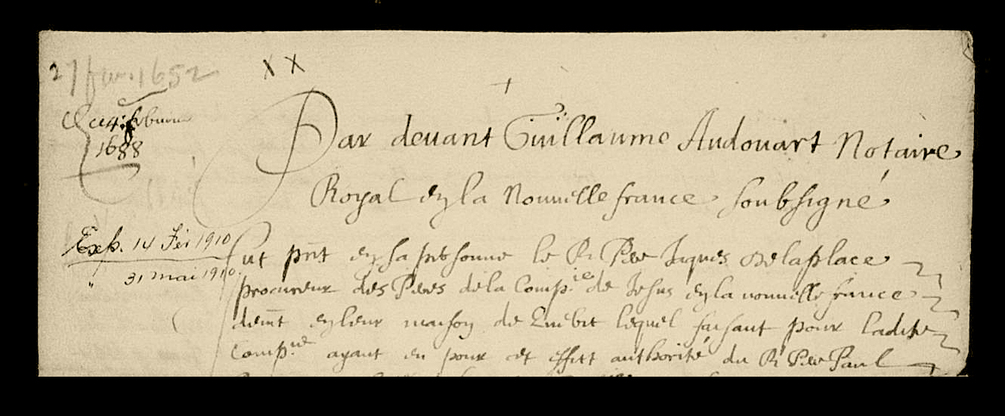 27 1652
XX
Le 4
1688
Par devant Guillaume Audouart Notaire
Royal en la Nouvelle france soubsigné
Exp. 14 Fév 1910
" 31 mai 1910
fut pnt en sa personne le R Pere Jaques Delaplace
procureur des Peres de la Compie de Jesus en la nouvelle france
demt en leur maison de Quebec lequel faisant pour ladite
Compnie ayant en pour cet effect authorité du R Pere Paul